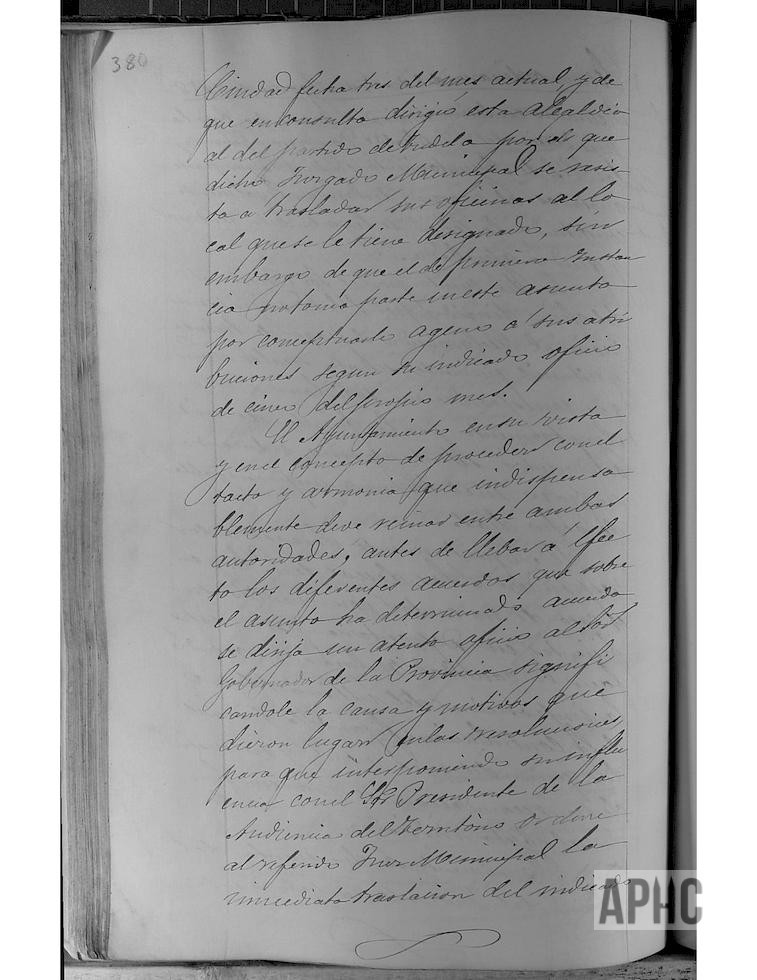 380
Ciudad fecha tres del mes actual, y de
que en consulta dirigió esta Alcaldia
al del partido de Tudela por el que
dicho Juzgado Municipal se resis-
te a trasladar sus oficinas al lo
cal que se le tiene designado, sin
embargo de que el de primera Instan
cia no toma parte en este asunto
por conceptuarlo ageno a sus atri
buciones segun su indicado oficio
de cinco del propio mes.
El Ayuntamiento en su vista
y en el concepto de proceder con el
tacto y armonia que indispensa
blemente deve reinar entre ambas
autoridades, antes de llebar a efec
to los diferentes acuerdos que sobre
el asunto ha determinado acuerda
se dirija un atento oficio al Sor
Gobernador de la Provincia signifi
candole la causa y motivos que
dieron lugar en las resoluciones
para que interponiendo su influ
encia con el Sor Presidente de la
Audiencia del Territorio ordene
al referido Juez Municipal la
inmediata traslacion del indicado
APHC